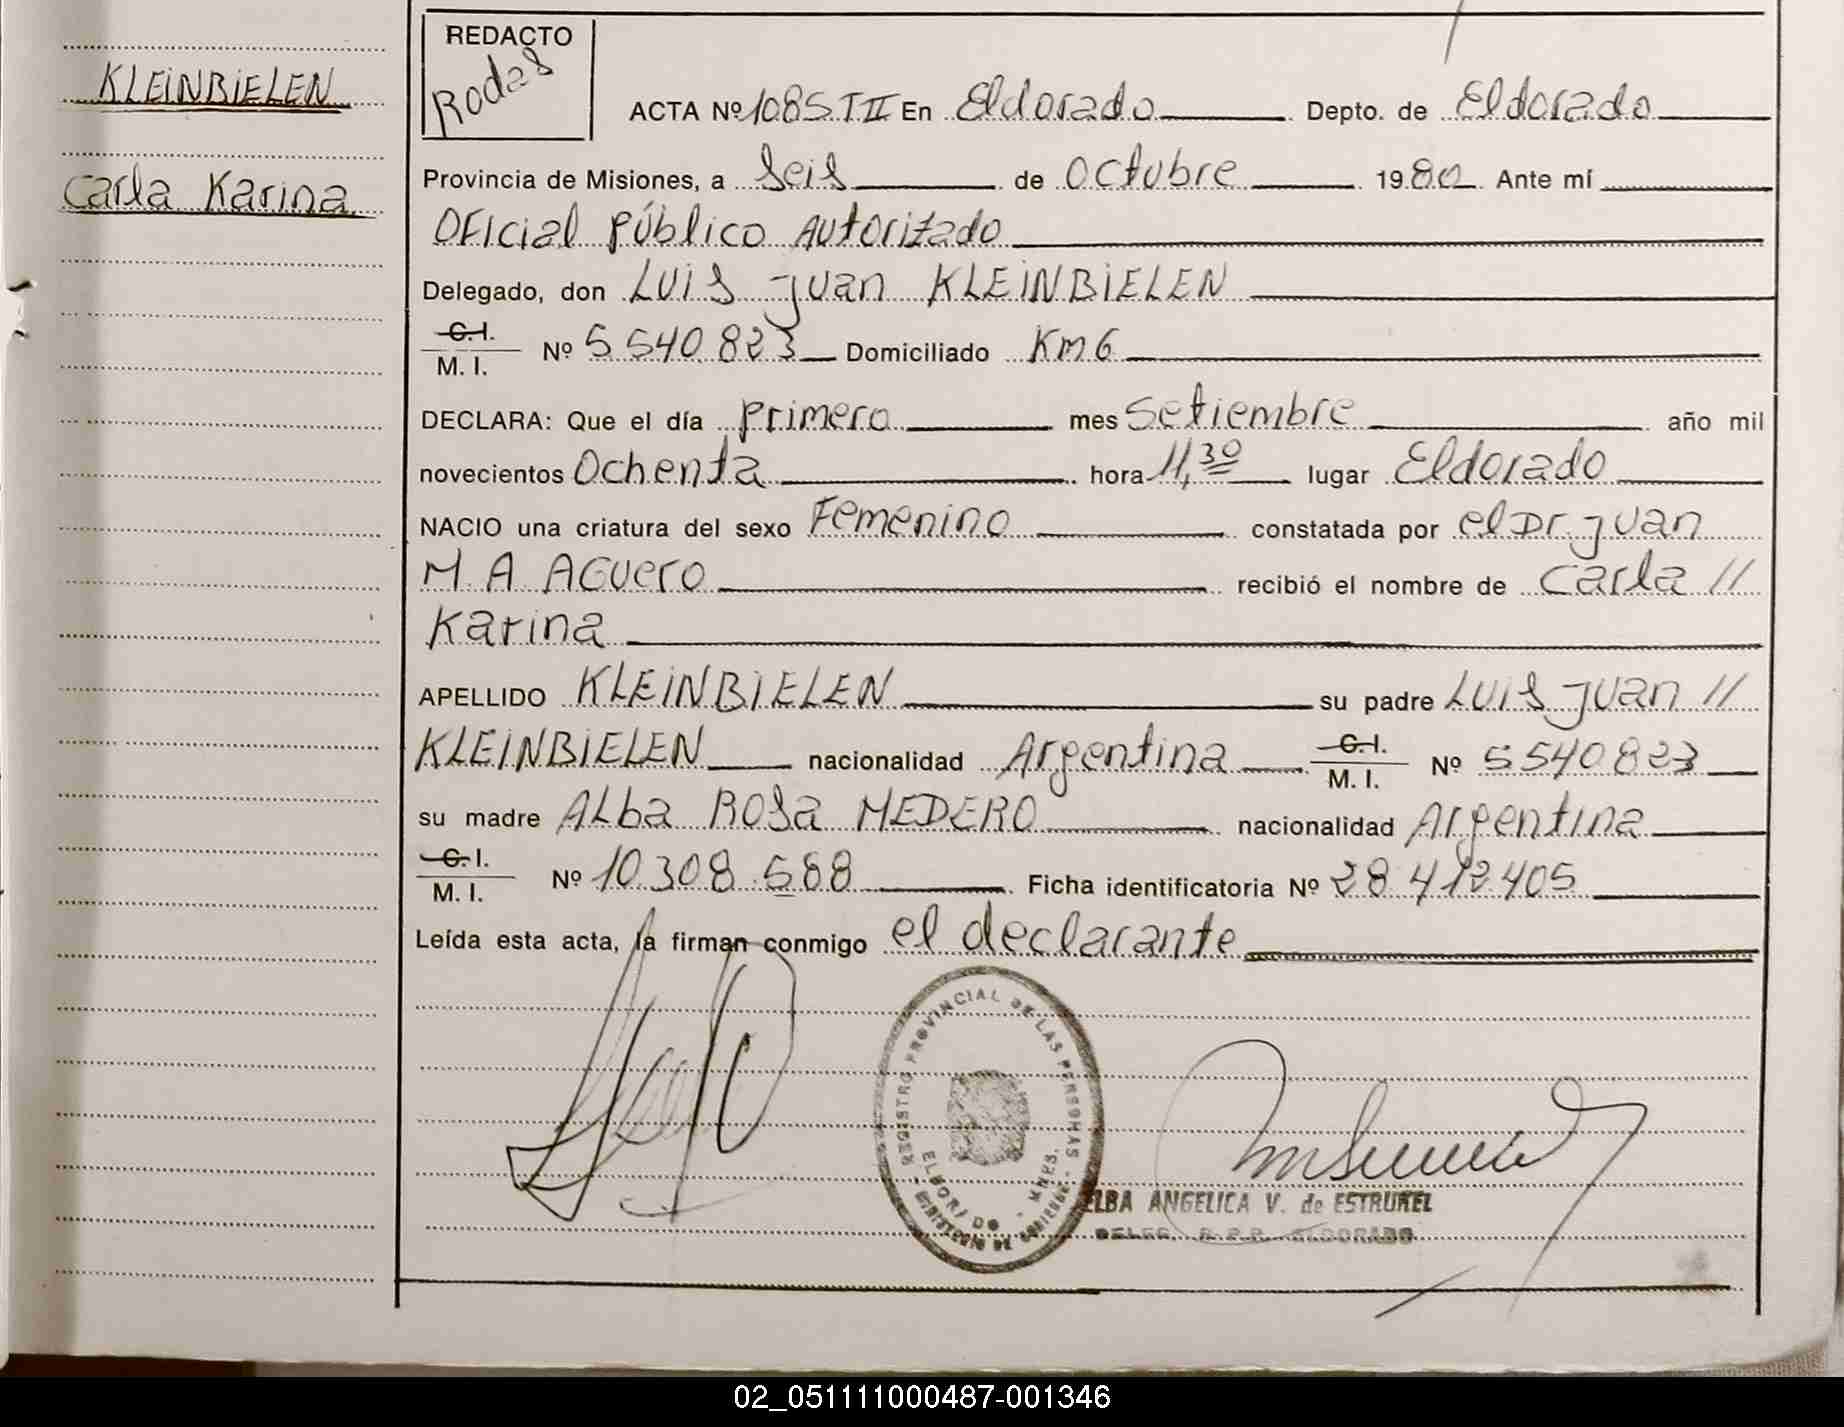 KLEINBIELEN
Carla Karina
REDACTO
Rodas
ACTA Nº 1085 T II En Eldorado Depto. de Eldorado
Provincia de Misiones, a Seis de Octubre 1980 Ante mí
Oficial Público Autorizado
Delegado, don Luis Juan KLEINBIELEN
C.I.
M. I. Nº 5.540.823 Domiciliado Km 6
DECLARA: Que el día primero mes Setiembre año mil
novecientos Ochenta hora 11,30 lugar Eldorado
NACIO una criatura del sexo Femenino constatada por el Dr. Juan
M. A. Aguero recibió el nombre de Carla //
Karina
APELLIDO KLEINBIELEN su padre Luis Juan //
KLEINBIELEN nacionalidad Argentina C.I.
M. I. Nº 5.540.823
su madre Alba Rosa MEDERO nacionalidad Argentina
C.I.
M. I. Nº 10.308.588 Ficha identificatoria Nº 28.412.405
Leída esta acta, la firman conmigo el declarante
REGISTRO PROVINCIAL DE LAS PERSONAS
ELDORADO - MNES.
MINISTERIO DE GOBIERNO
ELBA ANGELICA V. de ESTRUKEL
DELEG. R.P.P. ELDORADO
02_051111000487-001346